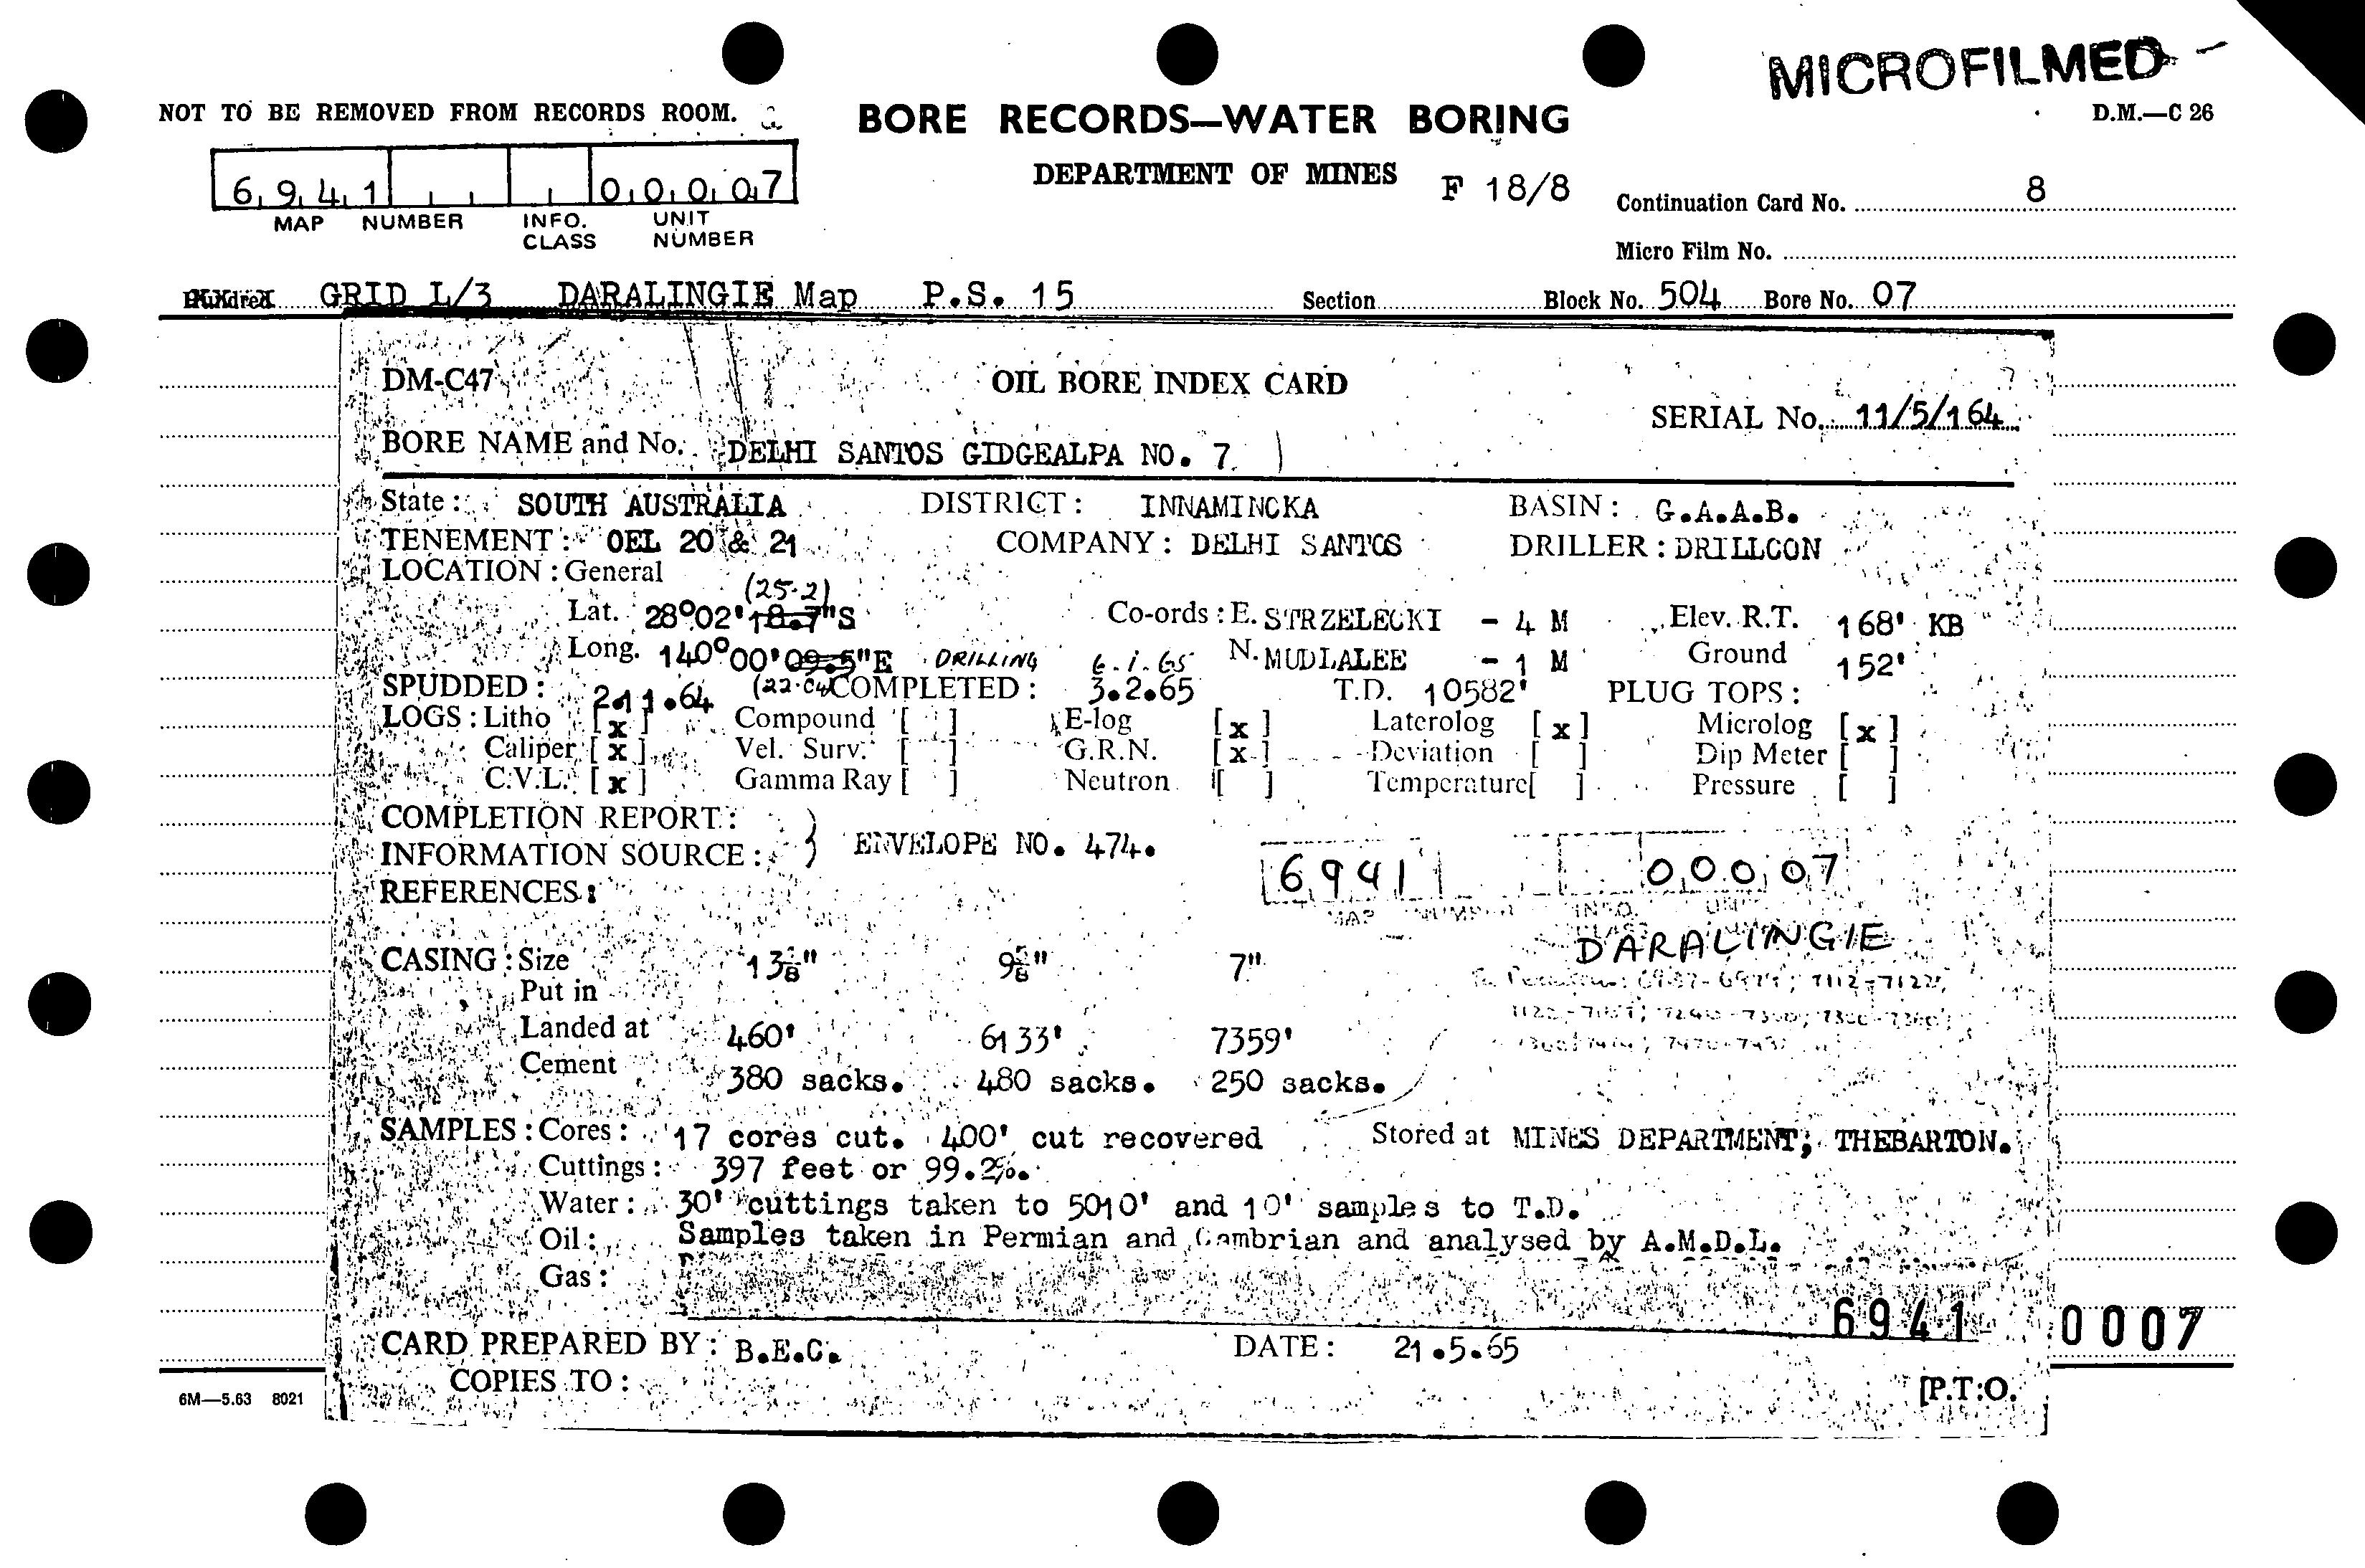 MICROFILMED
NOT TO BE REMOVED FROM RECORDS ROOM.
BORE RECORDS—WATER BORING
D.M.—C 26
DEPARTMENT OF MINES F 18/8
6941 00007
MAP NUMBER INFO. CLASS UNIT NUMBER
Continuation Card No. 8
Micro Film No.
Hundred GRID L/3 DARALINGIE Map P.S. 15 Section Block No. 504 Bore No. 07
DM-C47 OIL BORE INDEX CARD
SERIAL No. 11/5/164
BORE NAME and No. DELHI SANTOS GIDGEALPA NO. 7
State: SOUTH AUSTRALIA DISTRICT: INNAMINCKA BASIN: G.A.A.B.
TENEMENT: OEL 20 & 21 COMPANY: DELHI SANTOS DRILLER: DRILLCON
LOCATION: General
(25.2)
Lat. 28°02'18.7"S Co-ords: E. STRZELECKI - 4 M Elev. R.T. 168' KB
Long. 140°00'09.5"E DRILLING 6.1.65 N. MUDLALEE - 1 M Ground 152'
SPUDDED: 2.11.64 (22.04) COMPLETED: 3.2.65 T.D. 10582' PLUG TOPS:
LOGS: Litho [x] Compound [ ] E-log [x] Laterolog [x] Microlog [x]
Caliper [x] Vel. Surv. [ ] G.R.N. [x] Deviation [ ] Dip Meter [ ]
C.V.L. [x] Gamma Ray [ ] Neutron [ ] Temperature [ ] Pressure [ ]
COMPLETION REPORT:
INFORMATION SOURCE: } ENVELOPE NO. 474.
6941 00007
REFERENCES:
MAP NUMBER INFO. CLASS
DARALINGIE
CASING: Size 13 3/8" 9 5/8" 7"
Put in
Landed at 460' 6133' 7359'
Cement 380 sacks. 480 sacks. 250 sacks.
SAMPLES: Cores: 17 cores cut. 400' cut recovered Stored at MINES DEPARTMENT, THEBARTON.
Cuttings: 397 feet or 99.2%.
Water: 30' cuttings taken to 5010' and 10' samples to T.D.
Oil: Samples taken in Permian and Cambrian and analysed by A.M.D.L.
Gas:
6941 0007
CARD PREPARED BY: B.E.C. DATE: 21.5.65
COPIES TO:
[P.T.O.
6M—5.63 8021